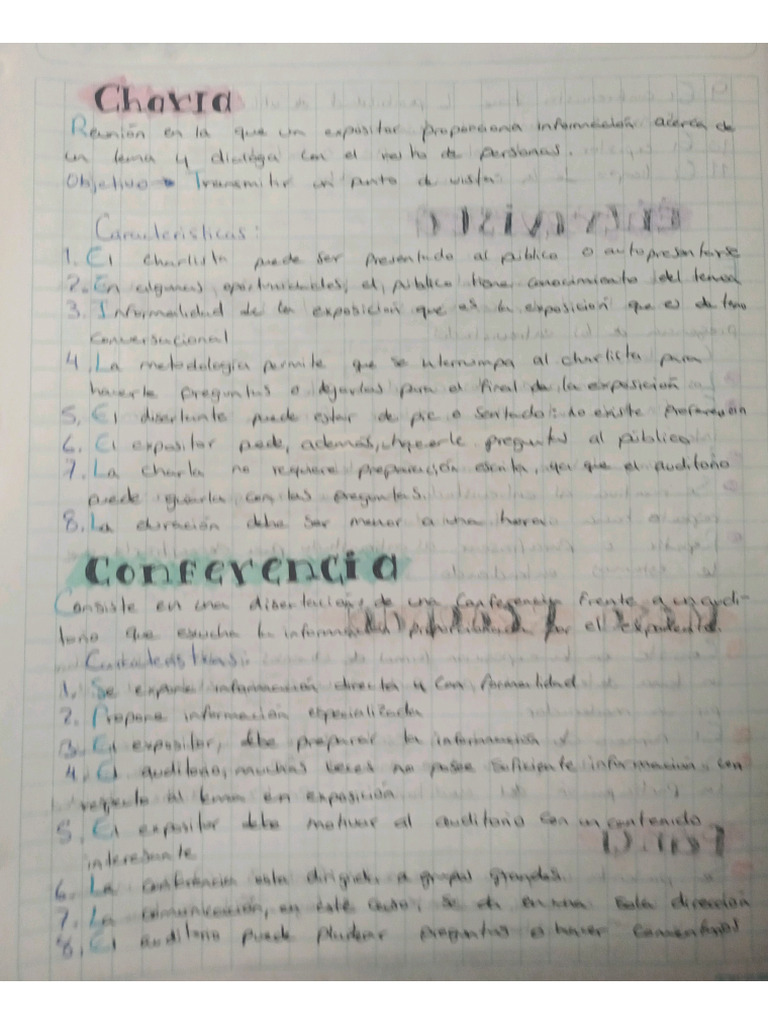 Charla
Reunión en la que un expositor proporciona información acerca de
un tema y dialóga con el resto de personas.
Objetivo Transmitir un punto de vista
Características:
1. El charlista puede ser presentado al público o autopresentarse
2. En algunas oportunidades, el público tiene conocimiento del tema
3. Informalidad de la exposición que es la exposición que es de tono
conversacional
4. La metodología permite que se interrumpa al charlista para
hacerle preguntas o dejarlas para el final de la exposición
5. El disertante puede estar de pie o sentado: no existe
6. El expositor puede, además, preguntas al público
7. La charla no requiere preparación escrita, ya que el auditorio
puede guiarla con las preguntas.
8. La duración debe ser menor a una hora
Conferencia
Consiste en una disertación, de una Conferencia frente a un audi-
torio que escucha la información proporcionada por el
Características:
1. Se expone información directa y con formalidad
2. Propone información especializada
3. El expositor, debe preparar la información
4. El auditorio, muchas veces no posee suficiente información, con
respecto al tema en exposición
5. El expositor debe motivar al auditorio con un contenido
interesante
6. La conferencia esta dirigida a grupos grandes.
7. La comunicación, en este caso, se da en una sola dirección
8. El auditorio puede preguntas o hacer comentarios